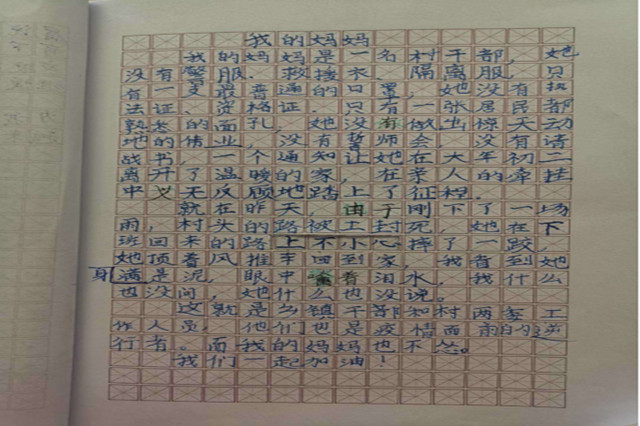 我的妈妈
我的妈妈是一名村干部，她
没有警服、救援衣、隔离服，只
有一支最普通的口罩，她没有执
法证、资格证，只有一张居民都
熟悉的面孔，她没有做出惊天动
地的伟业，没有誓师会，没有请
战书，一个通知让她在大年初二
离开了温暖的家，在亲人的牵挂
中义无反顾地踏上了征程。
就在昨天，由于刚下了一场
雨，村头的路被土封死，她在下
班回来的路上不小心摔了一跤，
她顶着风推车回到家，我看到她
身满是泥，眼中含着泪水，我什么
也没问，她什么也没说。
这就是乡镇干部和村两委工
作人员，他们也是疫情面前的逆
行者。而我的妈妈也不怂。
我们一起加油！